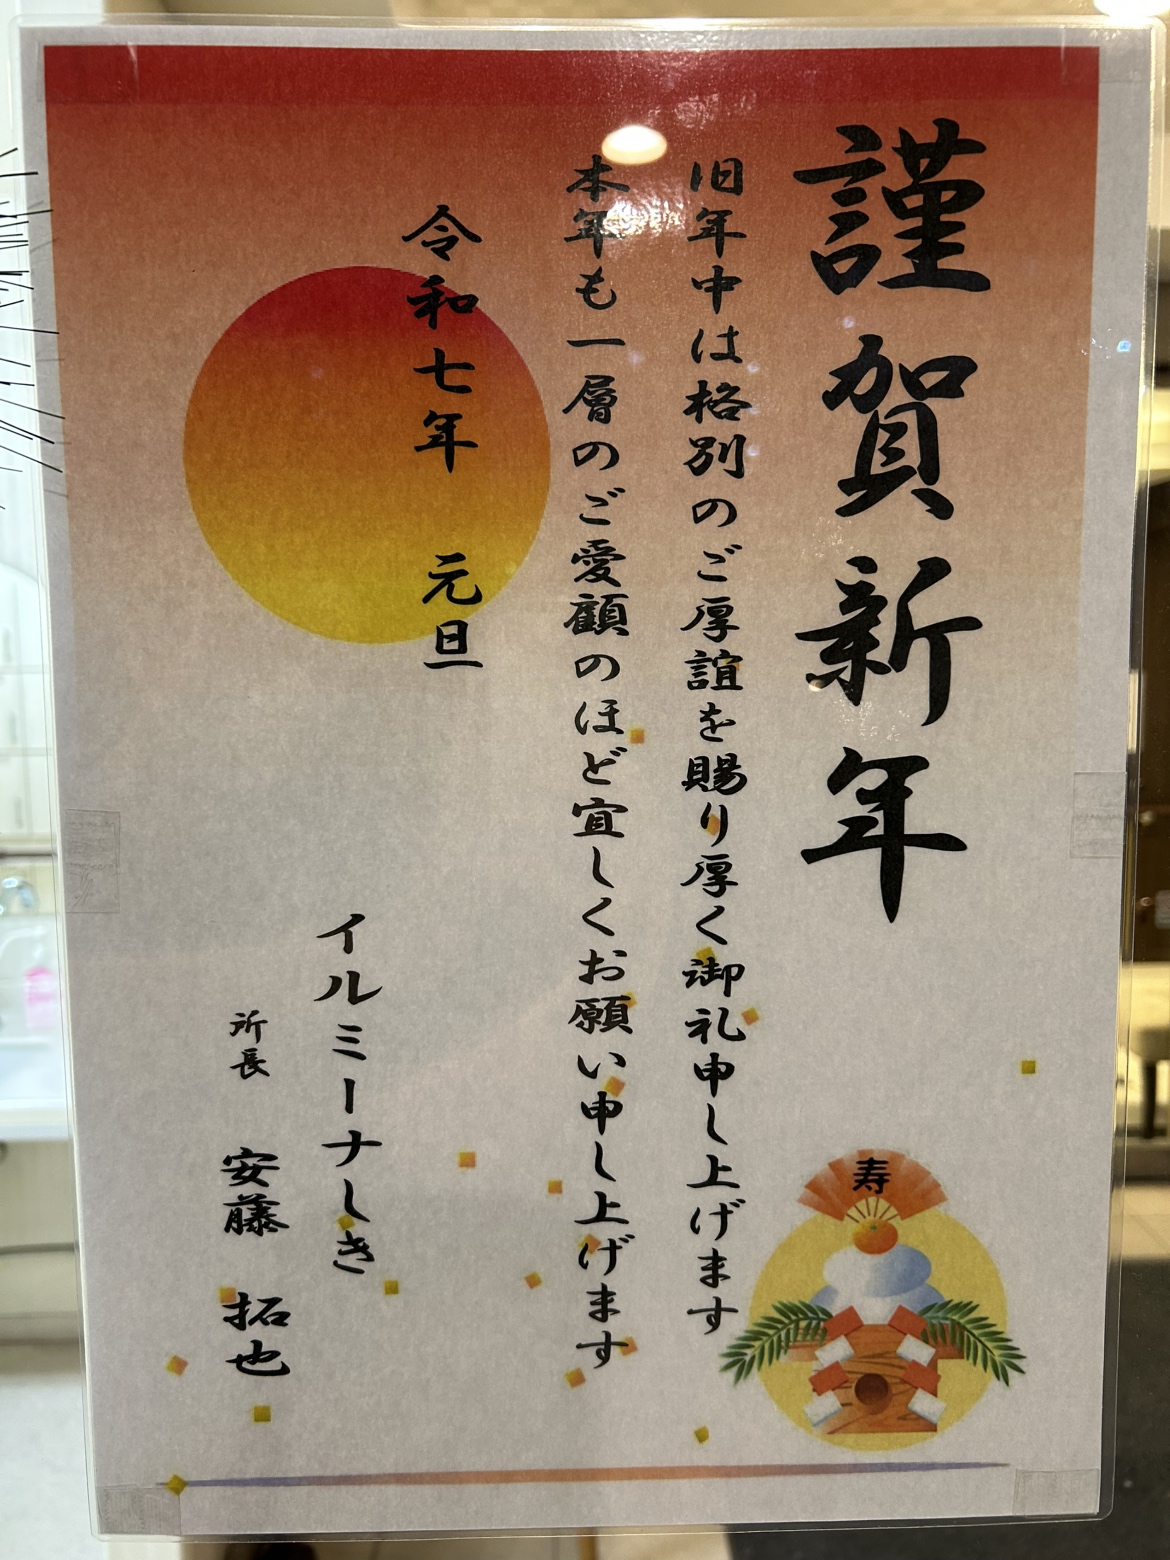 謹賀新年
旧年中は格別のご厚誼を賜り厚く御礼申し上げます
本年も一層のご愛顧のほど宜しくお願い申し上げます
令和七年 元旦
イルミーナしき
所長 安藤 拓也
寿